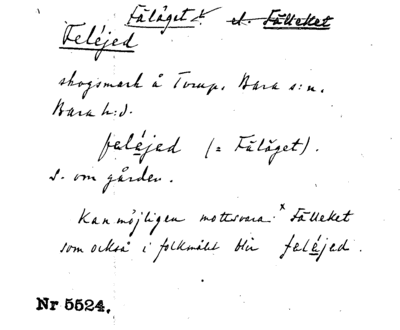 Fäläget x. el. Fälleket
Feléjed
skogsmark å Torup, Bara s:n,
Bara h:d.
feléjed (= Fäläget).
S. om gården.
Kan möjligen motsvara x Fälleket
som också i folkmålet blir feléjed.
Nr 5524.